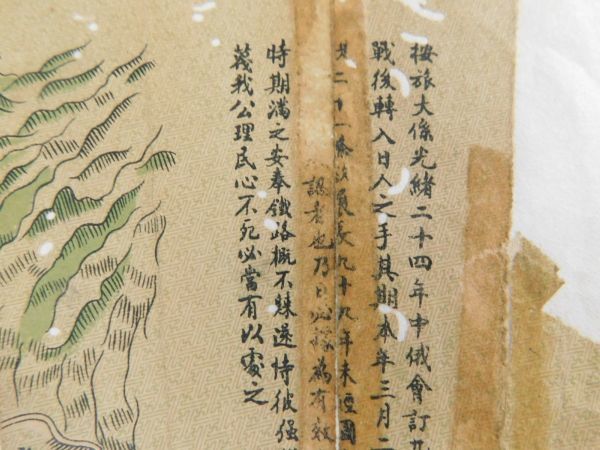 按旅大係光緒二十四年中俄會訂九
戰後轉入日人之手其期本年三月二
其二十一條展長九十九年未經國
認者也乃日必為有效
時期滿之安奉鐵路概不還恃彼強
蔑我公理民心不死必當有以處之